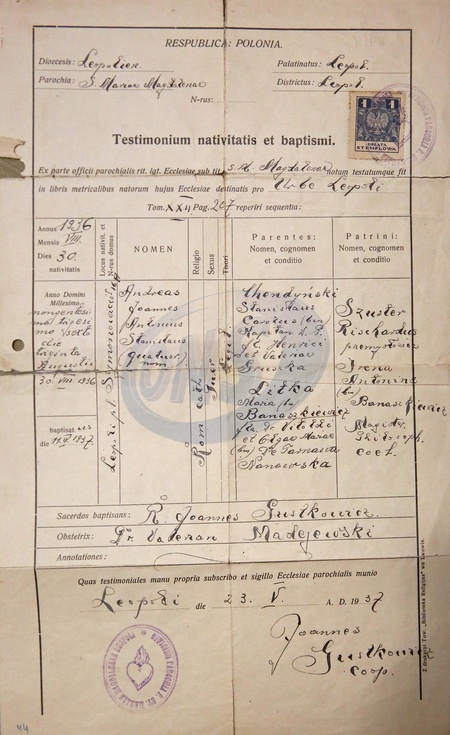 RESPUBLICA: POLONIA.
Dioecesis: Leopolien. Palatinatus: Leopol.
Parochia: S. Mariae Magdalenae Districtus: Leopol.
N-rus:
1
OPŁATA
STEMPLOWA
Testimonium nativitatis et baptismi.
Ex parte officii parochialis rit. lat. Ecclesiae sub tit. S. M. Magdalenae notum testatumque fit
in libris metricalibus natorum hujus Ecclesiae destinatis pro Urbe Leopoli
Tom. Pag. 207 reperiri sequentia:
Annus 1936
Mensis VIII.
Dies 30.
nativitatis
Locus nativit. et N-rus domus
NOMEN
Religio
Sexus
Thori
Parentes:
Nomen, cognomen
et conditio
Patrini:
Nomen, cognomen
et conditio
Anno Domini
Millesimo
nongentesi-
mo trigesi-
mo sexto
die
trigesima
Augusti
30. VIII 1936
baptisat us
die 1937
Leopoli pl.
Andreas
Joannes
Antonius
Stanislaus
quatuor
nom
Rom. cath
Puer
Legit.
Chondyński
Stanislaus
Carolus (bin)
Kapitan W. P.
fil. Henrici
et Valeriae
Gruszka
Litka
Maria (bin)
Banaszkiewicz
fia
et Olgae Mariae
(bin) de Tarnawa
Nanowska
Szuster
Rischardus
przemysłowiec
Irena
Antonina
(bin)
Banaszkiewicz
Magistr.
Philosoph.
coel.
Sacerdos baptisans: R. Joannes Gustkowicz
Obstetrix: Dr. Valerian Madejewski
Annotationes:
Quas testimoniales manu propria subscribo et sigillo Ecclesiae parochialis munio
Leopoli die 23. V. A. D. 1937
Joannes
Gustkowicz
coop.
44